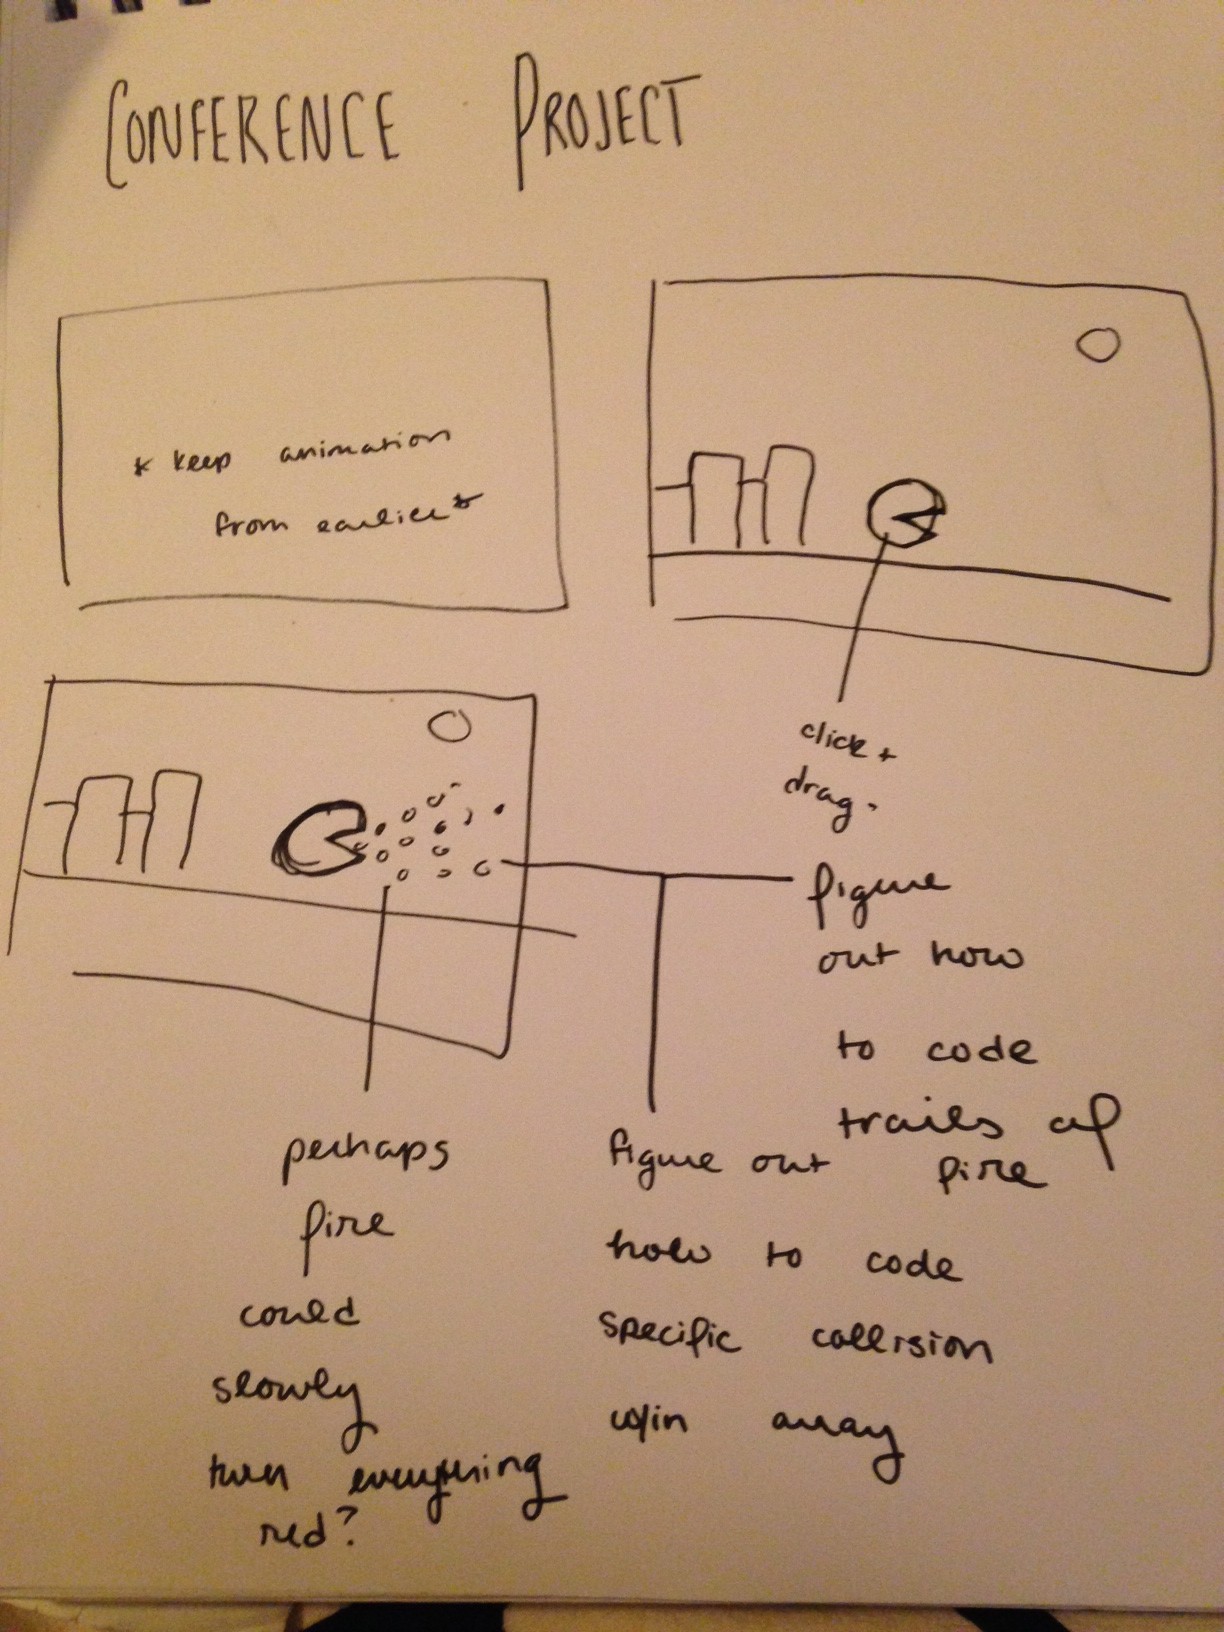 CONFERENCE PROJECT
* keep animation
from earlier *
click +
drag.
figure
out how
to code
trails of
fire
perhaps
fire
could
slowly
turn everything
red?
figure out
how to code
specific collision
w/in array